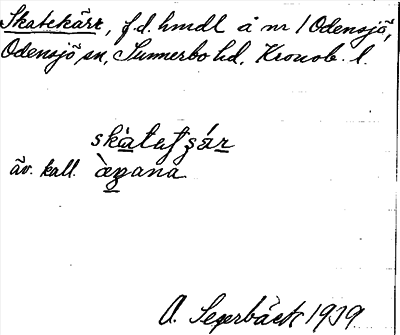 Skatekärr, f.d. hmdl å nr 1 Odensjö,
Odensjö sn, Sunnerbo hd, Kronob. l.
äv. kall.
A. Segerbäck 1939